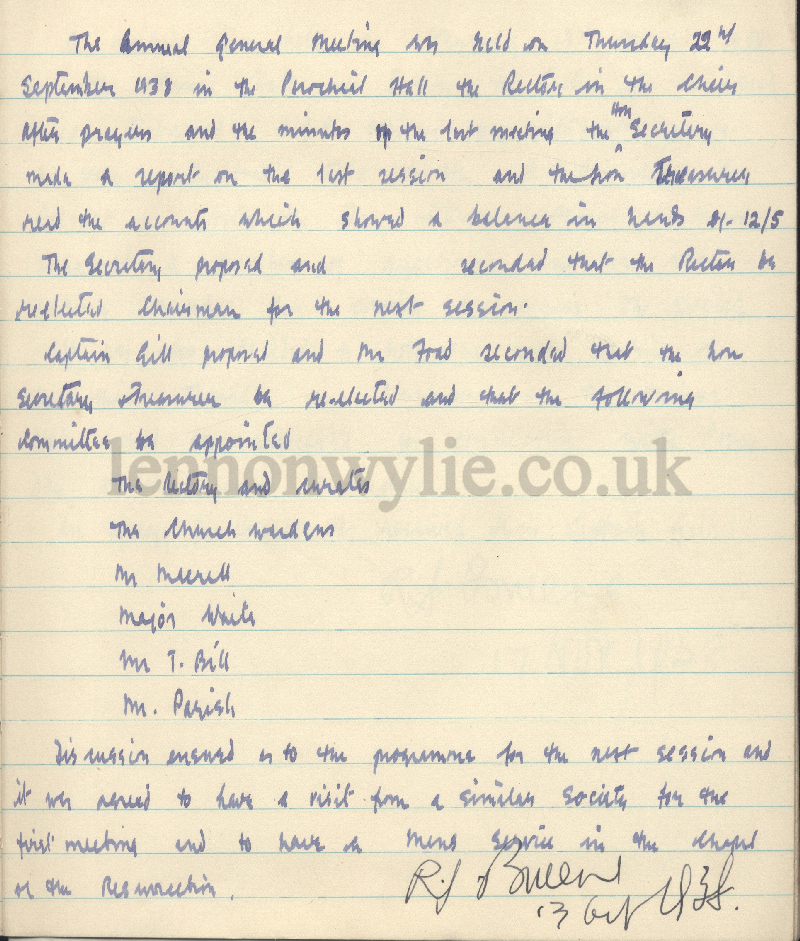 The Annual General Meeting was held on Thursday 22nd
September 1938 in the Parochial Hall the Rector in the chair
After prayers and the minutes of the last meeting the Hon Secretary
made a report on the last session and the hon Treasurer
read the accounts which showed a balance in hands of 12/5
The Secretary proposed and seconded that the Rector be
reelected Chairman for the next session.
Captain Gill proposed and Mr Food seconded that the hon
Secretary + Treasurer be re-elected and that the following
committee be appointed
lennonwylie.co.uk
The Rectory and curates
The Church wardens
Mr
Major White
Mr T. Bill
Mr. Parish
Discussion ensued as to the programme for the next session and
it was agreed to have a visit from a similar Society for the
first meeting and to have a Mens Service in the chapel
of the Resurrection.
R.S
13 Oct 1938.